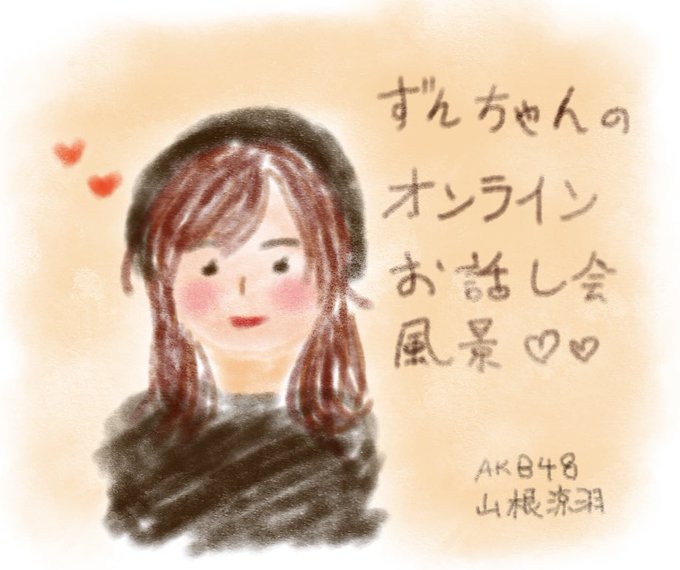 ずんちゃんの
オンライン
お話し会
風景♡♡
AKB48
山根涼羽